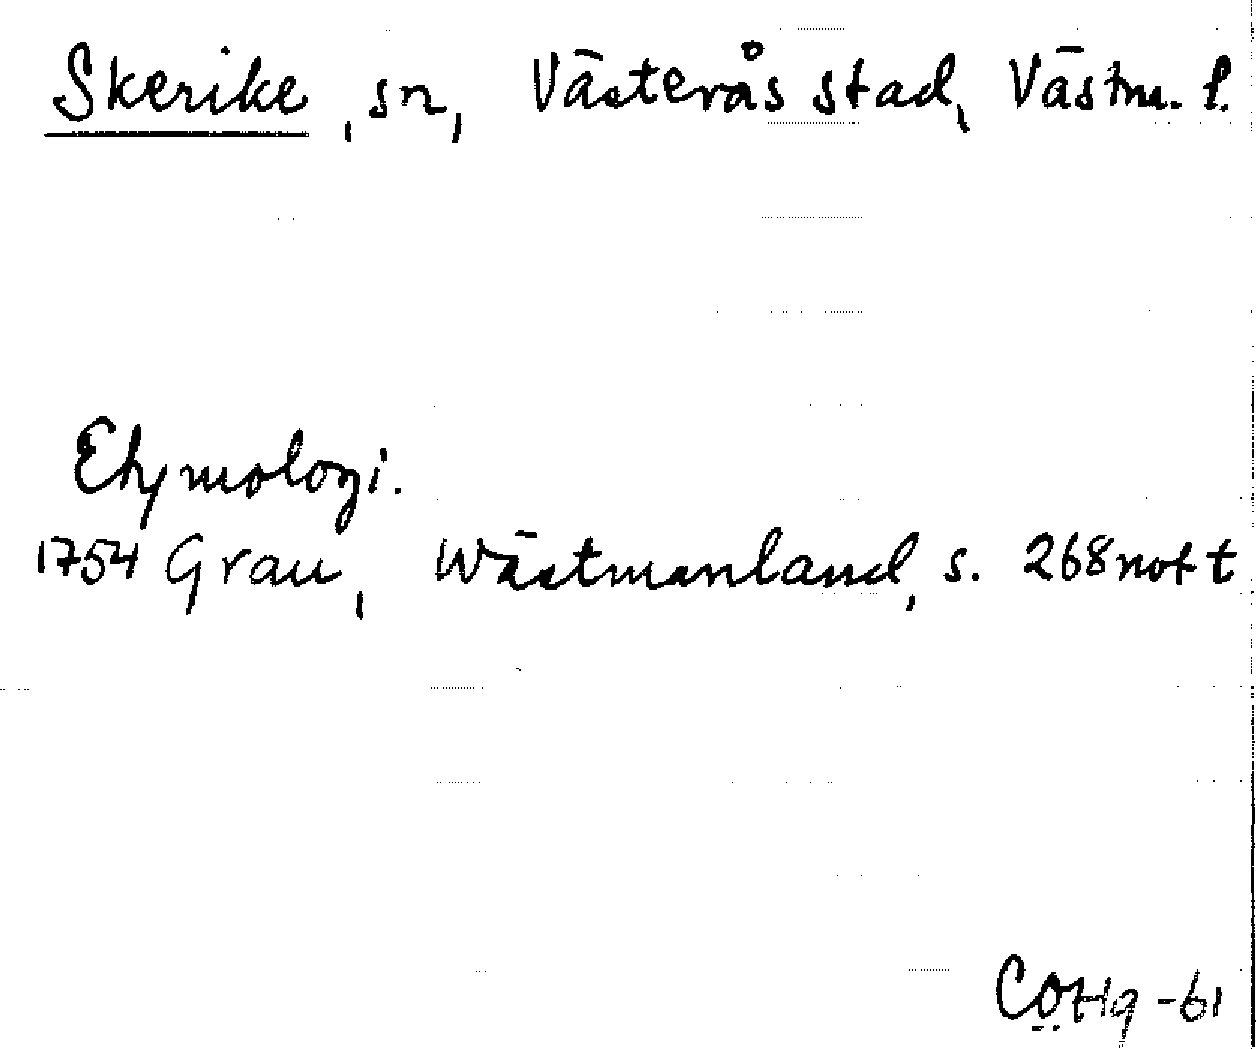 Skerike, sn, Västerås stad, Västm. l.
Etymologi.
1754 Grau, Wästmanland, s. 268 not t
CÖHg -61